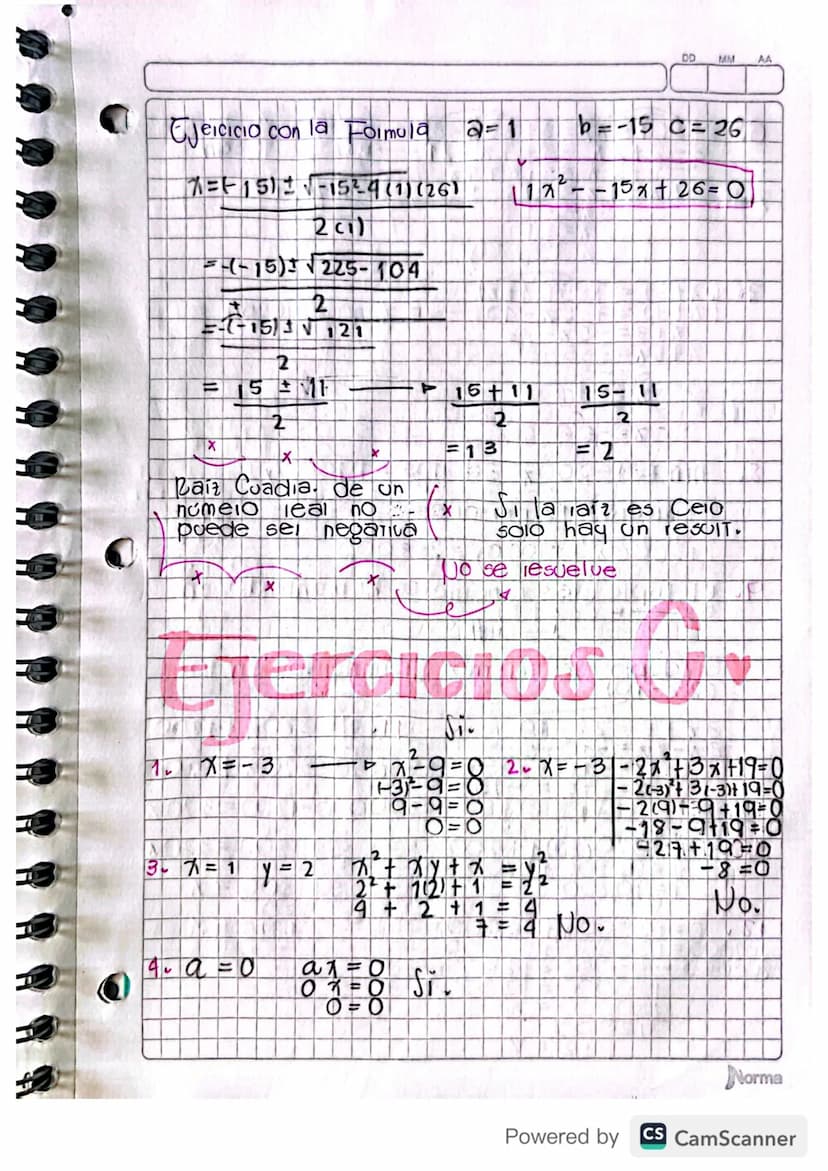 DD MM AA
Ejercicio con la Formula a=1 b=-15 c=26
x=(-15)±√-15²-4(1)(26)
2(1)
1x²--15x+26=0
=-(-15)±√225-104
2
=-(-15)±√121
2
= 15 ± 11 → 15+11 15-11
2 2 2
=13 =2
Raíz Cuadra. de un
número real no
puede ser negativa
Si la raíz es Cero
solo hay un result.
No se resuelve
Ejercicios G
Si.
1. x=-3 → x²-9=0
(-3)²-9=0
9-9=0
0=0
2. x=-3 -2x²+3x+19=0
-2(-3)²+3(-3)+19=0
-2(9)-9+19=0
-18-9+19=0
-27+19=0
-8=0
No.
3. x=1 y=2 x²+xy+x=y²
2²+1(2)+1=2²
4+2+1=4
7=4 No.
4. a=0 ax=0
0x=0 Si.
0=0
Norma
Powered by CS CamScanner